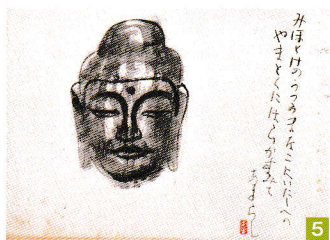 みほとけのうつらまなこにいにしへの
やまとくにはらかすみて
あるらし
5